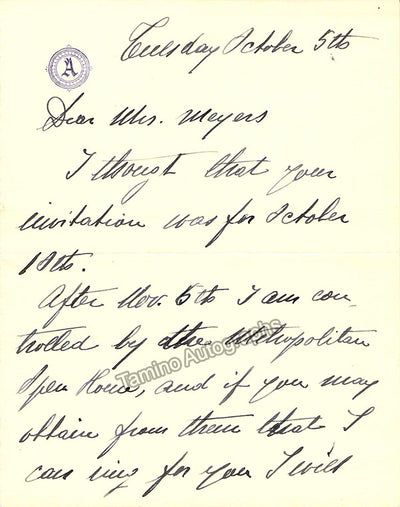 Tuesday October 5th
A
Dear Mrs. Meyers
I thought that your
invitation was for October
18th.
After Nov. 6th I am con-
trolled by the Metropolitan
Open House, and if you may
obtain from them that I
can sing for you I will
Tamino Autographs